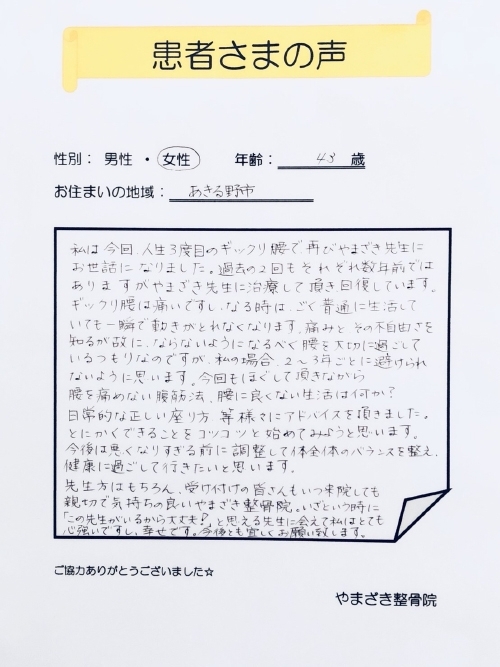 患者さまの声
性別： 男性 ・ 女性　年齢： 43 歳
お住まいの地域： あきる野市
私は今回、人生3度目のギックリ腰で、再びやまざき先生に
お世話になりました。過去の2回もそれぞれ数年前では
ありますがやまざき先生に治療して頂き回復しています。
ギックリ腰は痛いですし、なる時は、ごく普通に生活して
いても一瞬で動きがとれなくなります。痛みとその不自由さを
知るが故に、ならないようになるべく腰を大切に過ごして
いるつもりなのですが、私の場合、2〜3年ごとに避けられ
ないように思います。今回もほぐして頂きながら
腰を痛めない腹筋法、腰に良くない生活は何か?
日常的な正しい座り方 等様々にアドバイスを頂きました。
とにかくできることをコツコツと始めてみようと思います。
今後は悪くなりすぎる前に調整して体全体のバランスを整え、
健康に過ごして行きたいと思います。
先生方はもちろん、受け付けの皆さんもいつ来院しても
親切で気持ちの良いやまざき整骨院。いざという時に
「この先生がいるから大丈夫?」と思える先生に会えて私はとても
心強いですし、幸せです。今後とも宜しくお願い致します。
ご協力ありがとうございました☆
やまざき整骨院